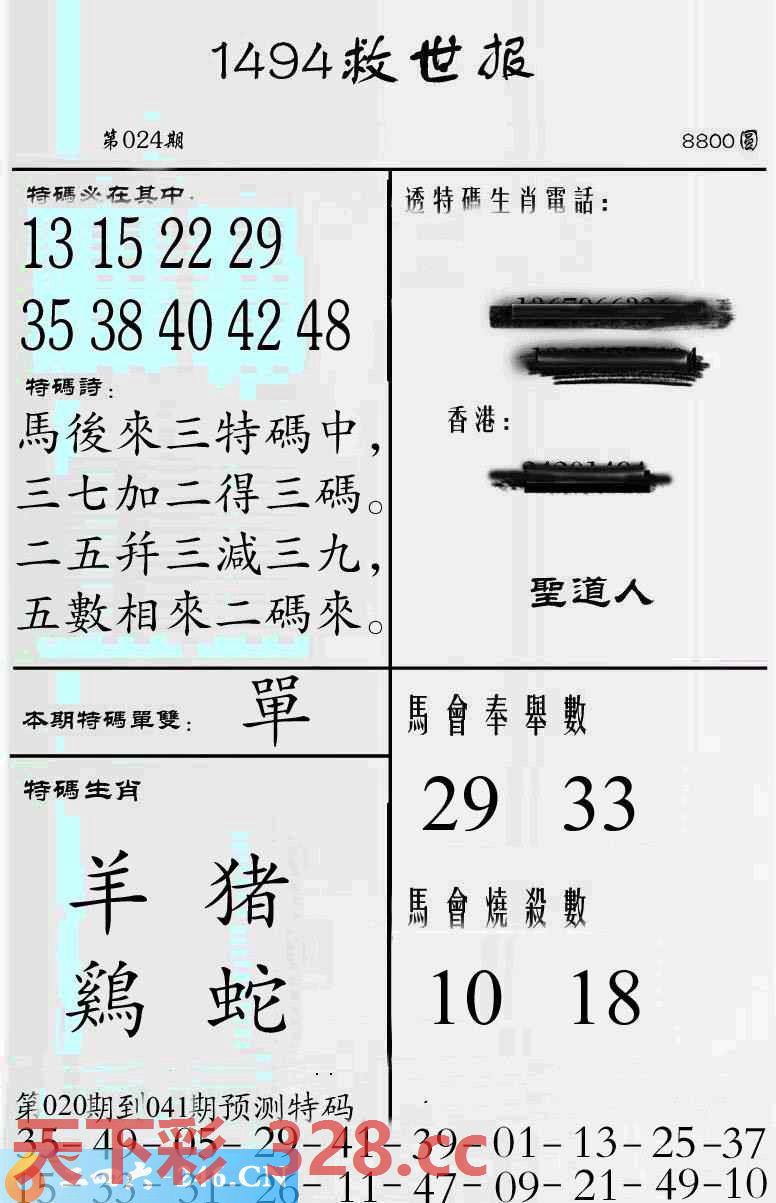 1494救世报
第024期
8800圓
特碼必在其中:
13 15 22 29
35 38 40 42 48
特碼詩:
馬後來三特碼中,
三七加二得三碼。
二五幷三減三九,
五數相來二碼來。
透特碼生肖電話:
香港:
聖道人
本期特碼單雙: 單
特碼生肖
羊 猪
鷄 蛇
馬會奉舉數
29 33
馬會燒殺數
10 18
第020期到041期预测特码
35-49-05-29-41-39-01-13-25-37
15-33-31-26-11-47-09-21-49-10
天下彩 328.cc
246.CN